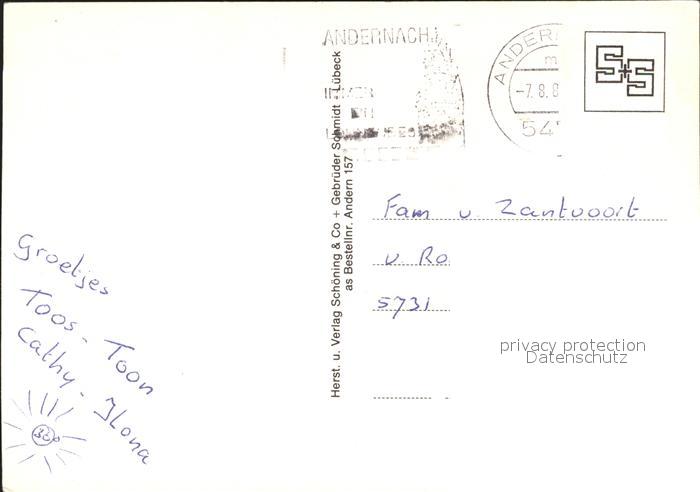 ANDERNACH
ANDER
m
-7. 8. 8
54
S+S
Herst. u. Verlag Schöning & Co + Gebrüder Schmidt - Lübeck
as Bestellnr. Andern 157
Fam v. Zantvoort
v. Ro
5731
Groetjes
Toos - Toon
Cathy - Ilona
36°
privacy protection
Datenschutz